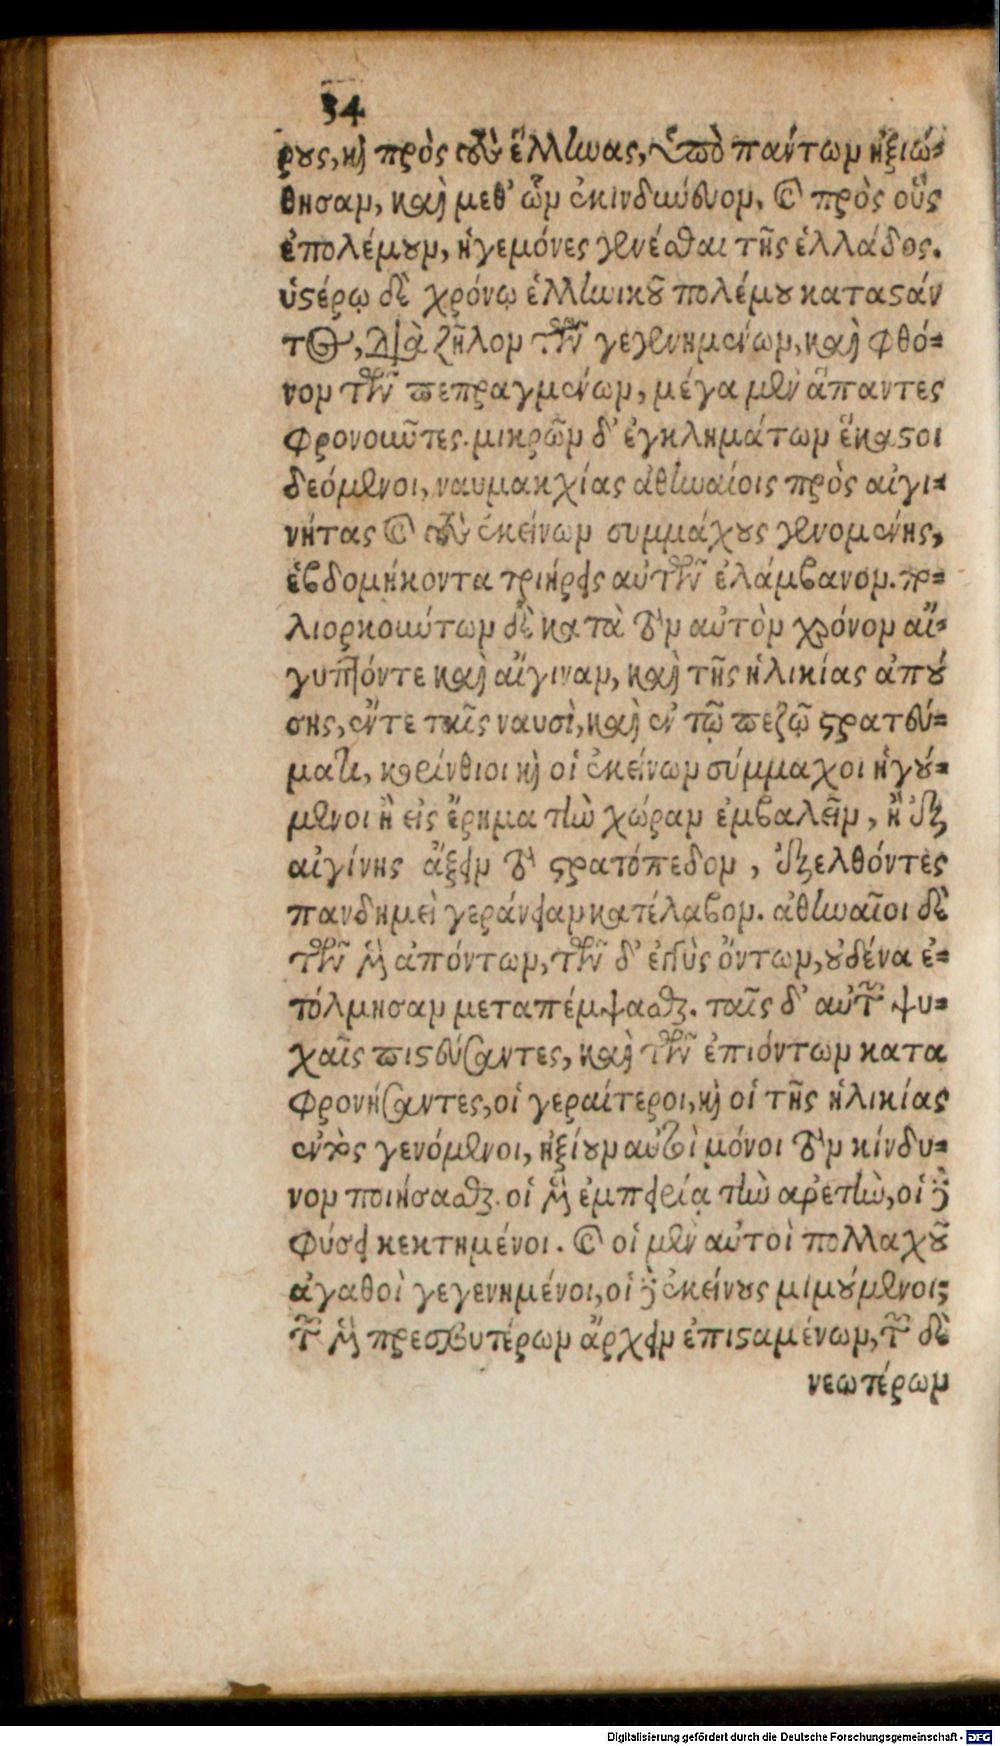 34
ρους, καὶ πρὸς τοὺς ἕλληνας, ὑπὸ πάντων ἠξιώ-
θησαν, καὶ μεθ' ὧν ἐκινδύνευον, καὶ πρὸς οὓς
ἐπολέμουν, ἡγεμόνες γενέσθαι τῆς ἑλλάδος.
ὑστέρῳ δὲ χρόνῳ ἑλληνικοῦ πολέμου καταστάν
τος, διὰ ζῆλον τῶν γεγενημένων, καὶ φθό-
νον τῶν πεπραγμένων, μέγα μὲν ἅπαντες
φρονοῦντες. μικρῶν δ' ἐγκλημάτων ἕκαστοι
δεόμενοι, ναυμακχίας ἀθηναίοις πρὸς αἰγι-
νήτας καὶ τοὺς ἐκείνων συμμάχους γενομένης,
ἑβδομήκοντα τριήρεις αὐτῶν ἐλάμβανον. πο-
λιορκούντων δὲ κατὰ τὸν αὐτὸν χρόνον αἴ-
γυπτόντε καὶ αἴγιναν, καὶ τῆς ἡλικίας ἀπού
σης, ἔντε ταῖς ναυσὶ, καὶ ἐν τῷ πεζῷ στρατεύ-
ματι, κορίνθιοι καὶ οἱ ἐκείνων σύμμαχοι ἡγού-
μενοι ἢ εἰς ἔρημα τὴν χώραν ἐμβαλεῖν, ἢ ἐξ
αἰγίνης ἄξειν τὸ στρατόπεδον, ἐξελθόντες
πανδημεὶ γεράνειαν κατέλαβον. ἀθηναῖοι δὲ
τῶν μὲν ἀπόντων, τῶν δ' ἐγγὺς ὄντων, οὐδένα ἐ-
τόλμησαν μεταπέμψασθαι. ταῖς δ' αὐτῶν ψυ-
χαῖς πιστεύσαντες, καὶ τῶν ἐπιόντων κατα
φρονήσαντες, οἱ γεραίτεροι, καὶ οἱ τῆς ἡλικίας
ἐντὸς γενόμενοι, ἠξίουν αὐτοὶ μόνοι τὸν κίνδυ-
νον ποιήσασθαι. οἱ μὲν ἐμπειρίᾳ τὴν ἀρετὴν, οἱ δὲ
φύσει κεκτημένοι. καὶ οἱ μὲν αὐτοὶ πολλαχοῦ
ἀγαθοὶ γεγενημένοι, οἱ δὲ ἐκείνους μιμούμενοι;
τῶν μὲν πρεσβυτέρων ἄρχειν ἐπισταμένων, τῶν δὲ
νεωτέρων
Digitalisierung gefördert durch die Deutsche Forschungsgemeinschaft - DFG